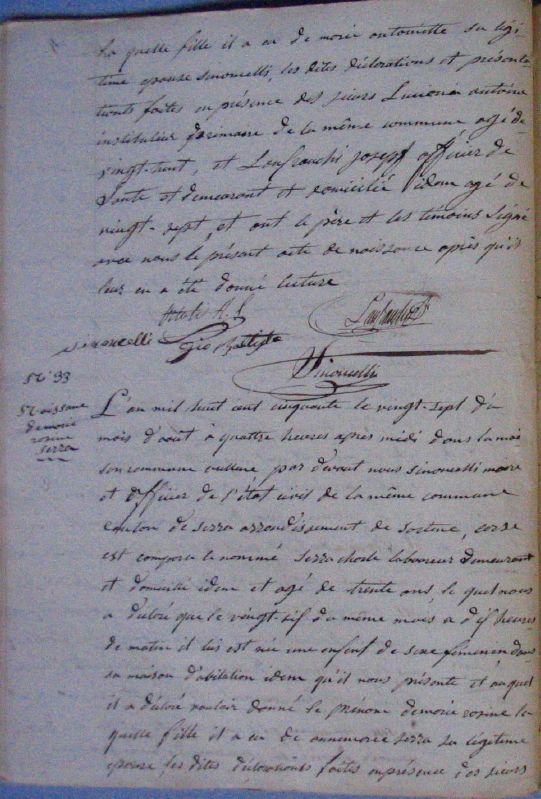 la quelle fille il a eu de marie antoinette sa légi
time épouse simoncelli, les dites déclarations et présenta
tions faites en présence des sieurs Lucioni antoine
instituteur primaire de la même commune agé de
vingt-huit, et Lanfranchi joseph officier de
santé et demeurant et domicilié idem agé de
vingt-sept, et ont le père et les témoins signé
avec nous le présent acte de naissance après qu'il
leur en a été donné lecture
simoncelli Gio Batista
Simoncelli
N° 33
Naissance
de marie
rosine
serra
L'an mil huit cent cinquante le vingt-sept du
mois d'août à quattre heures après midi dans la mai
son commune par devant nous simoncelli maire
et officier de l'état civil de la même commune
canton de serra arrondissement de sartene, corse
est comparu le nommé serra laboureur demeurant
et domicilié idem et agé de trente ans, le quel nous
a déclaré que le vingt-sif du même mois a dif heures
de matin il lui est née une enfant de sexe féminin dans
sa maison d'abitation idem qu'il nous présente et auquel
il a déclaré vouloir donné le prénom de marie rosine la
quelle fille il a eu de annemarie serra sa légitime
épouse les dites déclarations faites en présence des sieurs